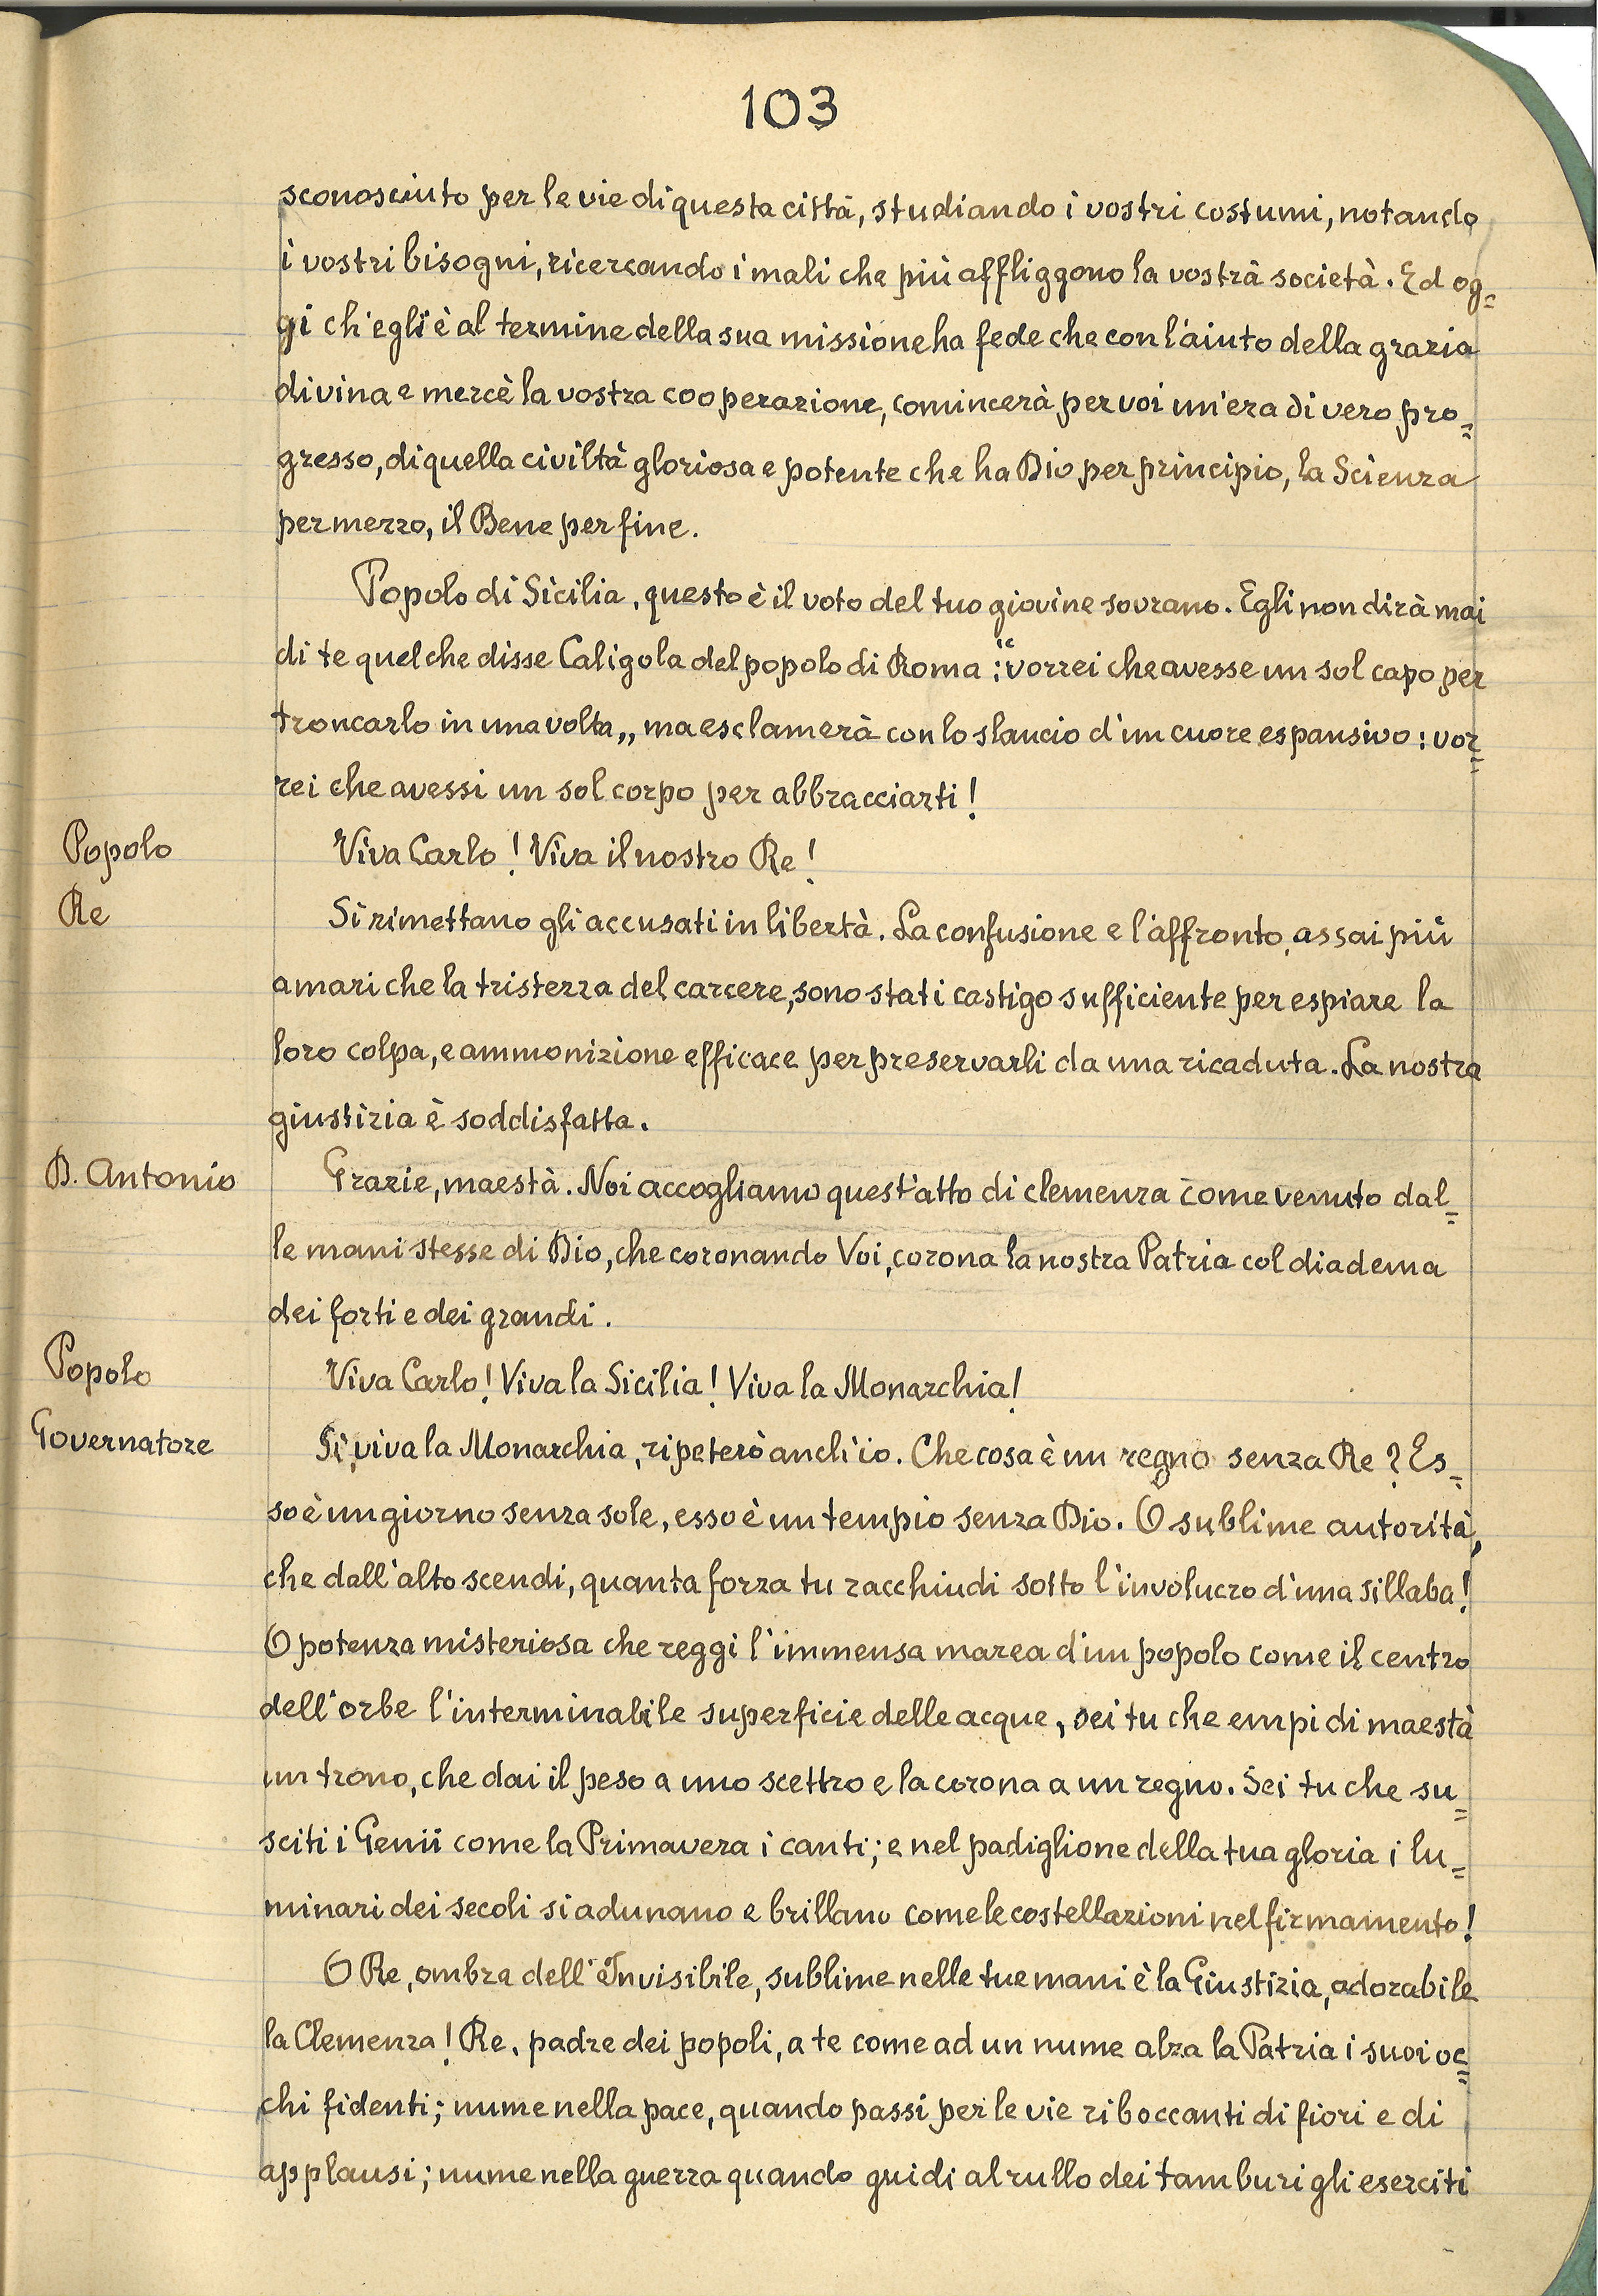 103
sconosciuto per le vie di questa città, studiando i vostri costumi, notando
i vostri bisogni, ricercando i mali che più affliggono la vostra società. Ed og=
gi ch'egli è al termine della sua missione ha fede che con l'aiuto della grazia
divina e mercè la vostra cooperazione, comincerà per voi un'era di vero pro=
gresso, di quella civiltà gloriosa e potente che ha Dio per principio, la Scienza
per mezzo, il Bene per fine.
Popolo di Sicilia, questo è il voto del tuo giovine sovrano. Egli non dirà mai
di te quel che disse Caligola del popolo di Roma : "vorrei che avesse un sol capo per
troncarlo in una volta,, ma esclamerà con lo slancio d'un cuore espansivo : vor=
rei che avessi un sol corpo per abbracciarti!
Popolo Viva Carlo! Viva il nostro Re!
Re Si rimettano gli accusati in libertà. La confusione e l'affronto, assai più
amari che la tristezza del carcere, sono stati castigo sufficiente per espiare la
loro colpa, e ammonizione efficace per preservarli da una ricaduta. La nostra
giustizia è soddisfatta.
D. Antonio Grazie, maestà. Noi accogliamo quest'atto di clemenza come venuto dal=
le mani stesse di Dio, che coronando Voi, corona la nostra Patria col diadema
dei forti e dei grandi.
Popolo Viva Carlo! Viva la Sicilia! Viva la Monarchia!
Governatore Sì, viva la Monarchia, ripeterò anch'io. Che cosa è un regno senza Re? Es=
so è un giorno senza sole, esso è un tempio senza Dio. O sublime autorità,
che dall'alto scendi, quanta forza tu racchiudi sotto l'involucro d'una sillaba!
O potenza misteriosa che reggi l'immensa marea d'un popolo come il centro
dell'orbe l'interminabile superficie delle acque, sei tu che empi di maestà
un trono, che dai il peso a uno scettro e la corona a un regno. Sei tu che su=
sciti i Genii come la Primavera i canti; e nel padiglione della tua gloria i lu=
minari dei secoli si adunano e brillano come le costellazioni nel firmamento!
O Re, ombra dell'Invisibile, sublime nelle tue mani è la Giustizia, adorabile
la Clemenza! Re, padre dei popoli, a te come ad un nume alza la Patria i suoi oc=
chi fidenti; nume nella pace, quando passi per le vie riboccanti di fiori e di
applausi; nume nella guerra quando guidi al rullo dei tamburi gli eserciti